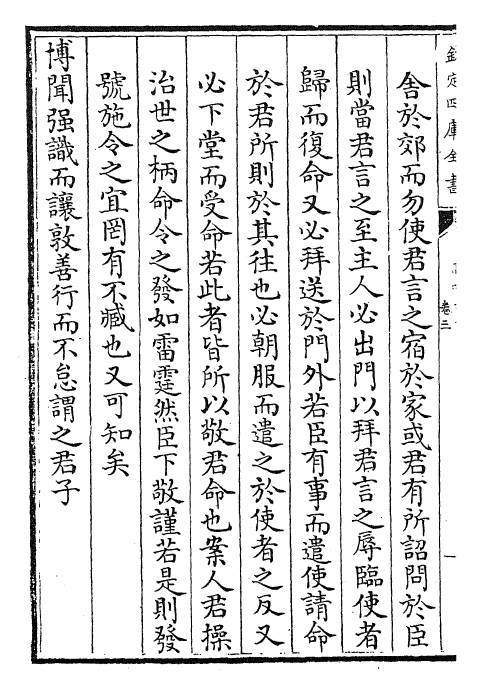 欽定四庫全書
卷三
舎於郊而勿使君言之宿於家或君有所詔問於臣
則當君言之至主人必出門以拜君言之辱臨使者
歸而復命又必拜送於門外若臣有事而遣使請命
於君所則於其往也必朝服而遣之於使者之反又
必下堂而受命若此者皆所以敬君命也案人君操
治世之柄命令之發如雷霆然臣下敬謹若是則發
號施令之宜罔有不臧也又可知矣
博聞强識而讓敦善行而不怠謂之君子